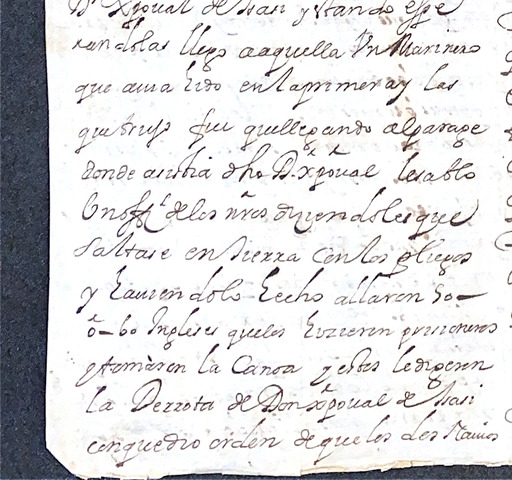 Dn Xpoual de Isasi y stando espe
randolas llego aaquella Vn Marinero
que auia hido en la primera y las
que trujo fue que llegando al parage
donde asistia dho D. Xpoual les ablo
Vn offl. de los nros diziendoles que
saltase en tierra con los pliegos
y hauiendolo hecho allaron
Ingleses que los hizieron prisioneros
y tomaron la Canoa y estos le dijeron
la Derrota de Don Xpoual de Isasi
con que dio orden de que los dos Nauios